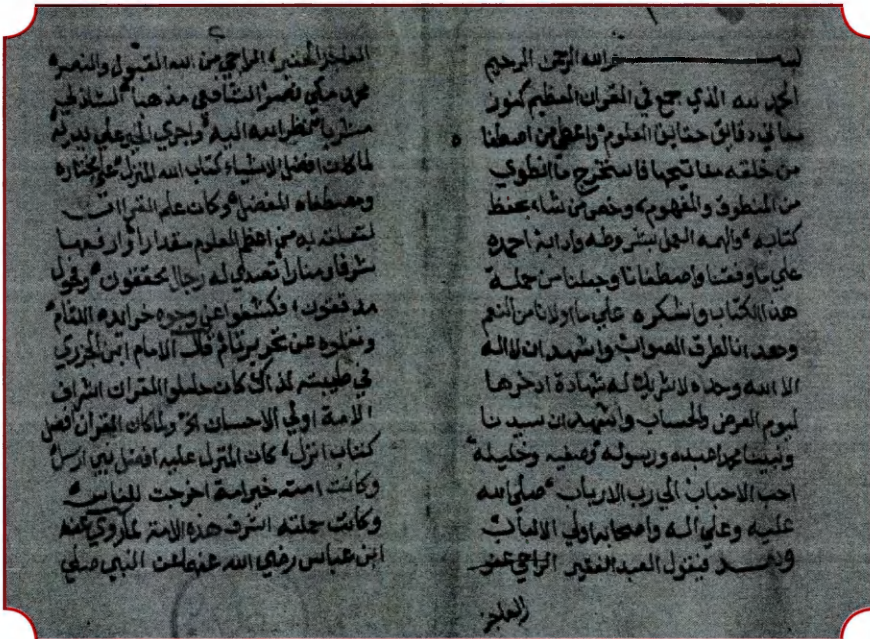 بسم الله الرحمن الرحيم
الحمد لله الذي جمع في القران العظيم كنوز
معاني دقايق حقايق العلوم واعطي من اصطفا
من خلقه مفاتيحها فاستخرج ما انطوي
من المنطوق والمفهوم وخص من شاء بحفظ
كتابه والهمه العمل بشروطه وادابه احمده
علي ما وفقنا واصطفانا وجعلنا من حملة
هذا الكتاب واشكره علي ما اولانا من النعم
وهدانا لطرق الصواب واشهد ان لا اله
الا الله وحده لا شريك له شهادة ادخرها
ليوم العرض والحساب واشهد ان سيدنا
ونبينا محمدا عبده ورسوله وصفيه وخليله
احب الاحباب الي رب الارباب صلي الله
عليه وعلي اله واصحابه اولي الالباب
وبعد فيقول العبد الفقير الراجي عفو
العاجز الراجي من الله القبول والنصر
محمد مكي نصر الشافعي مذهبا الشاذلي
نظر الله اليه واجري الخير علي يديه
لما كان افضل الاشياء كتاب الله المنزل علي مختاره
ومصطفاه المفضل وكان علم القراات
لتعلقه به من اعظم العلوم مقدارا وارفعها
شرفا ومنارا تصدي له رجال محققون وفحول
مدققون فكشفوا عن وجوه خرايده اللثام
ونقلوه عن تحرير تام قال الامام ابن الجزري
في طيبته لذاك كان حاملوا القران اشراف
الامة اولي الاحسان الخ ولما كان القران افضل
كتاب انزل كان المنزل عليه افضل نبي ارسل
وكانت امته خير امة اخرجت للناس
وكانت حملته اشرف هذه الامة لما روي عن
ابن عباس رضي الله عنهما عن النبي صلي